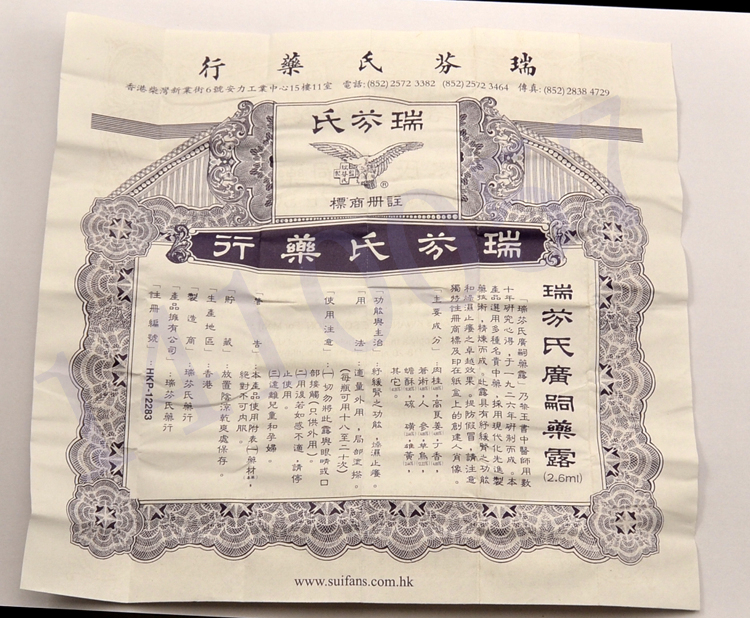 瑞芬氏藥行
香港柴灣新業街6號安力工業中心15樓11室 電話:(852) 2572 3382 (852) 2572 3464 傳真:(852) 2838 4729
瑞芬氏
®
註冊商標
瑞芬氏藥行
瑞芬氏廣嗣藥露 (2.6ml)
「瑞芬氏廣嗣藥露」乃黎玉書中醫師用數
十年研究心得,于一九二六年研制而成。本
產品選用多種名貴中藥,採用現代化先進製
藥技術,精煉而成。此露具有紓緩腎之功能
和燥濕止癢之卓越效果。提防假冒,請注意
獨特註冊商標及印在紙盒上的創建人肖像。
「主要成分」:肉桂,高良姜,丁香,
蒼術,人參,草烏,
蟾酥,硫磺,雄黃,
其它。
「功能與主治」:紓緩腎之功能,燥濕止癢。
「用法」:適量外用,局部塗搽。
(每瓶可用十八至二十次)
「使用注意」:(一)切勿將此露與眼睛或口
部接觸(只供外用)
(二)用後若如感不適,請停
止使用。
(三)遠離兒童和孕婦。
「警告」:本產品使用附表一藥材,
絕對不可內服。
「貯藏」:放置陰涼乾爽處保存。
「生產地區」:香港
「製造商」:瑞芬氏藥行
「產品擁有公司」:瑞芬氏藥行
「註冊編號」:HKP-12283
www.suifans.com.hk